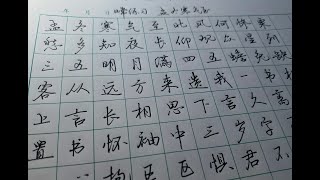 孟冬寒气至北风何惨栗
愁多知夜长仰观众星列
三五明月满四五蟾兔缺
客从远方来遗我一书
上言长相思下言久离
置书怀袖中三岁字不
抱区区惧君不